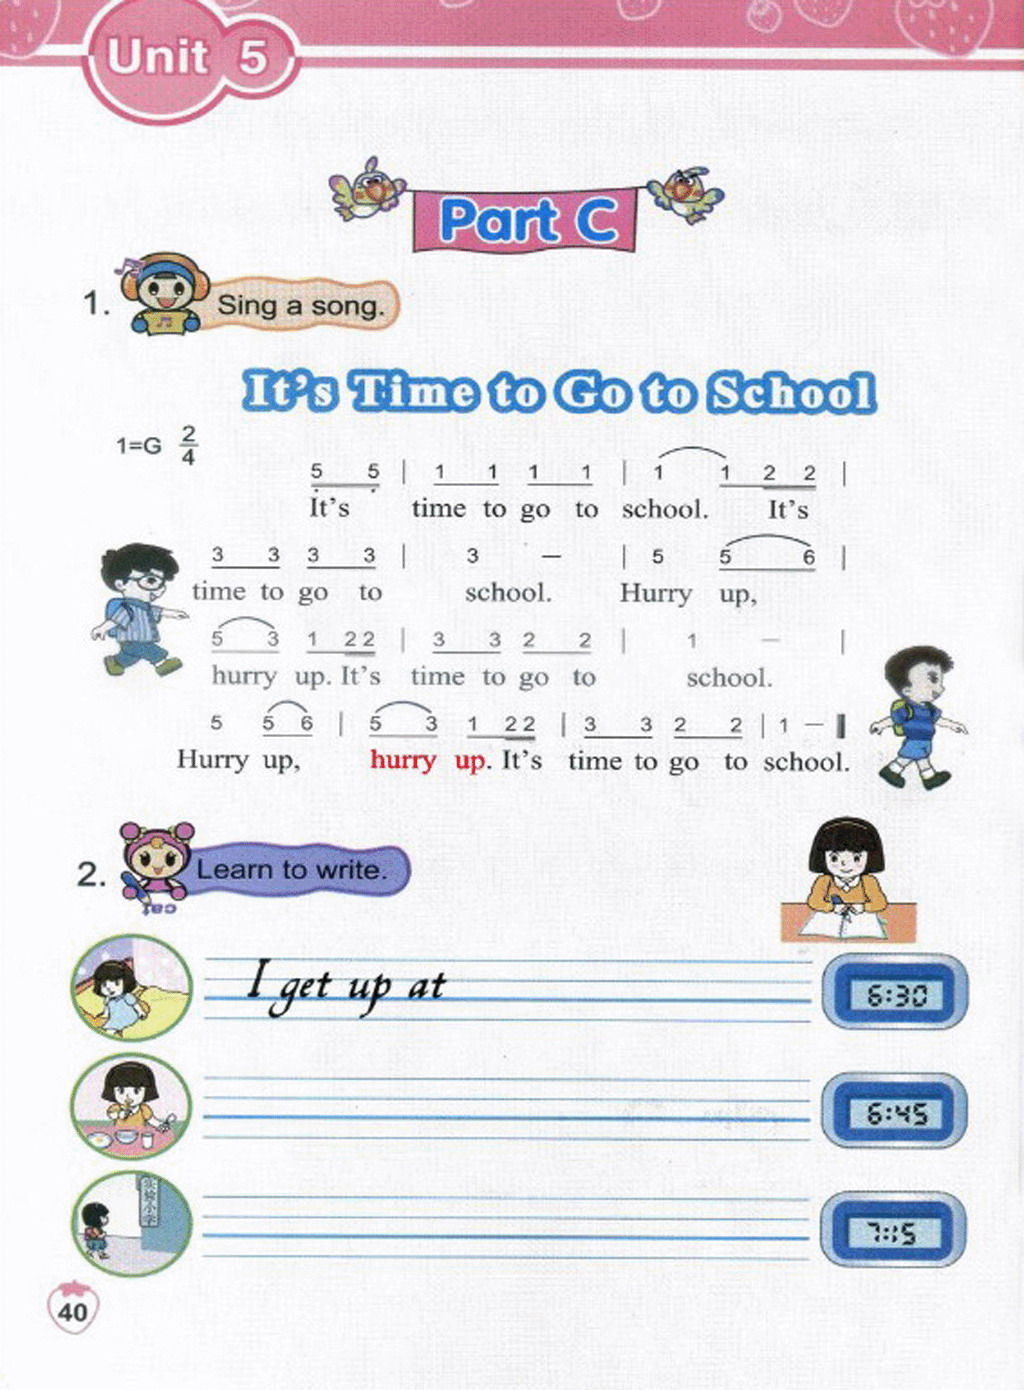 Unit 5
Part C
1. Sing a song.
It's Time to Go to School
1=G 2/4
5 5 | 1 1 1 1 | 1 1 2 2 |
It's time to go to school. It's
3 3 3 3 | 3 — | 5 5 6 |
time to go to school. Hurry up,
5 3 1 2 2 | 3 3 2 2 | 1 — |
hurry up. It's time to go to school.
5 5 6 | 5 3 1 2 2 | 3 3 2 2 | 1 — ‖
Hurry up, hurry up. It's time to go to school.
2. Learn to write.
cat
I get up at 6:30
6:45
7:15
40